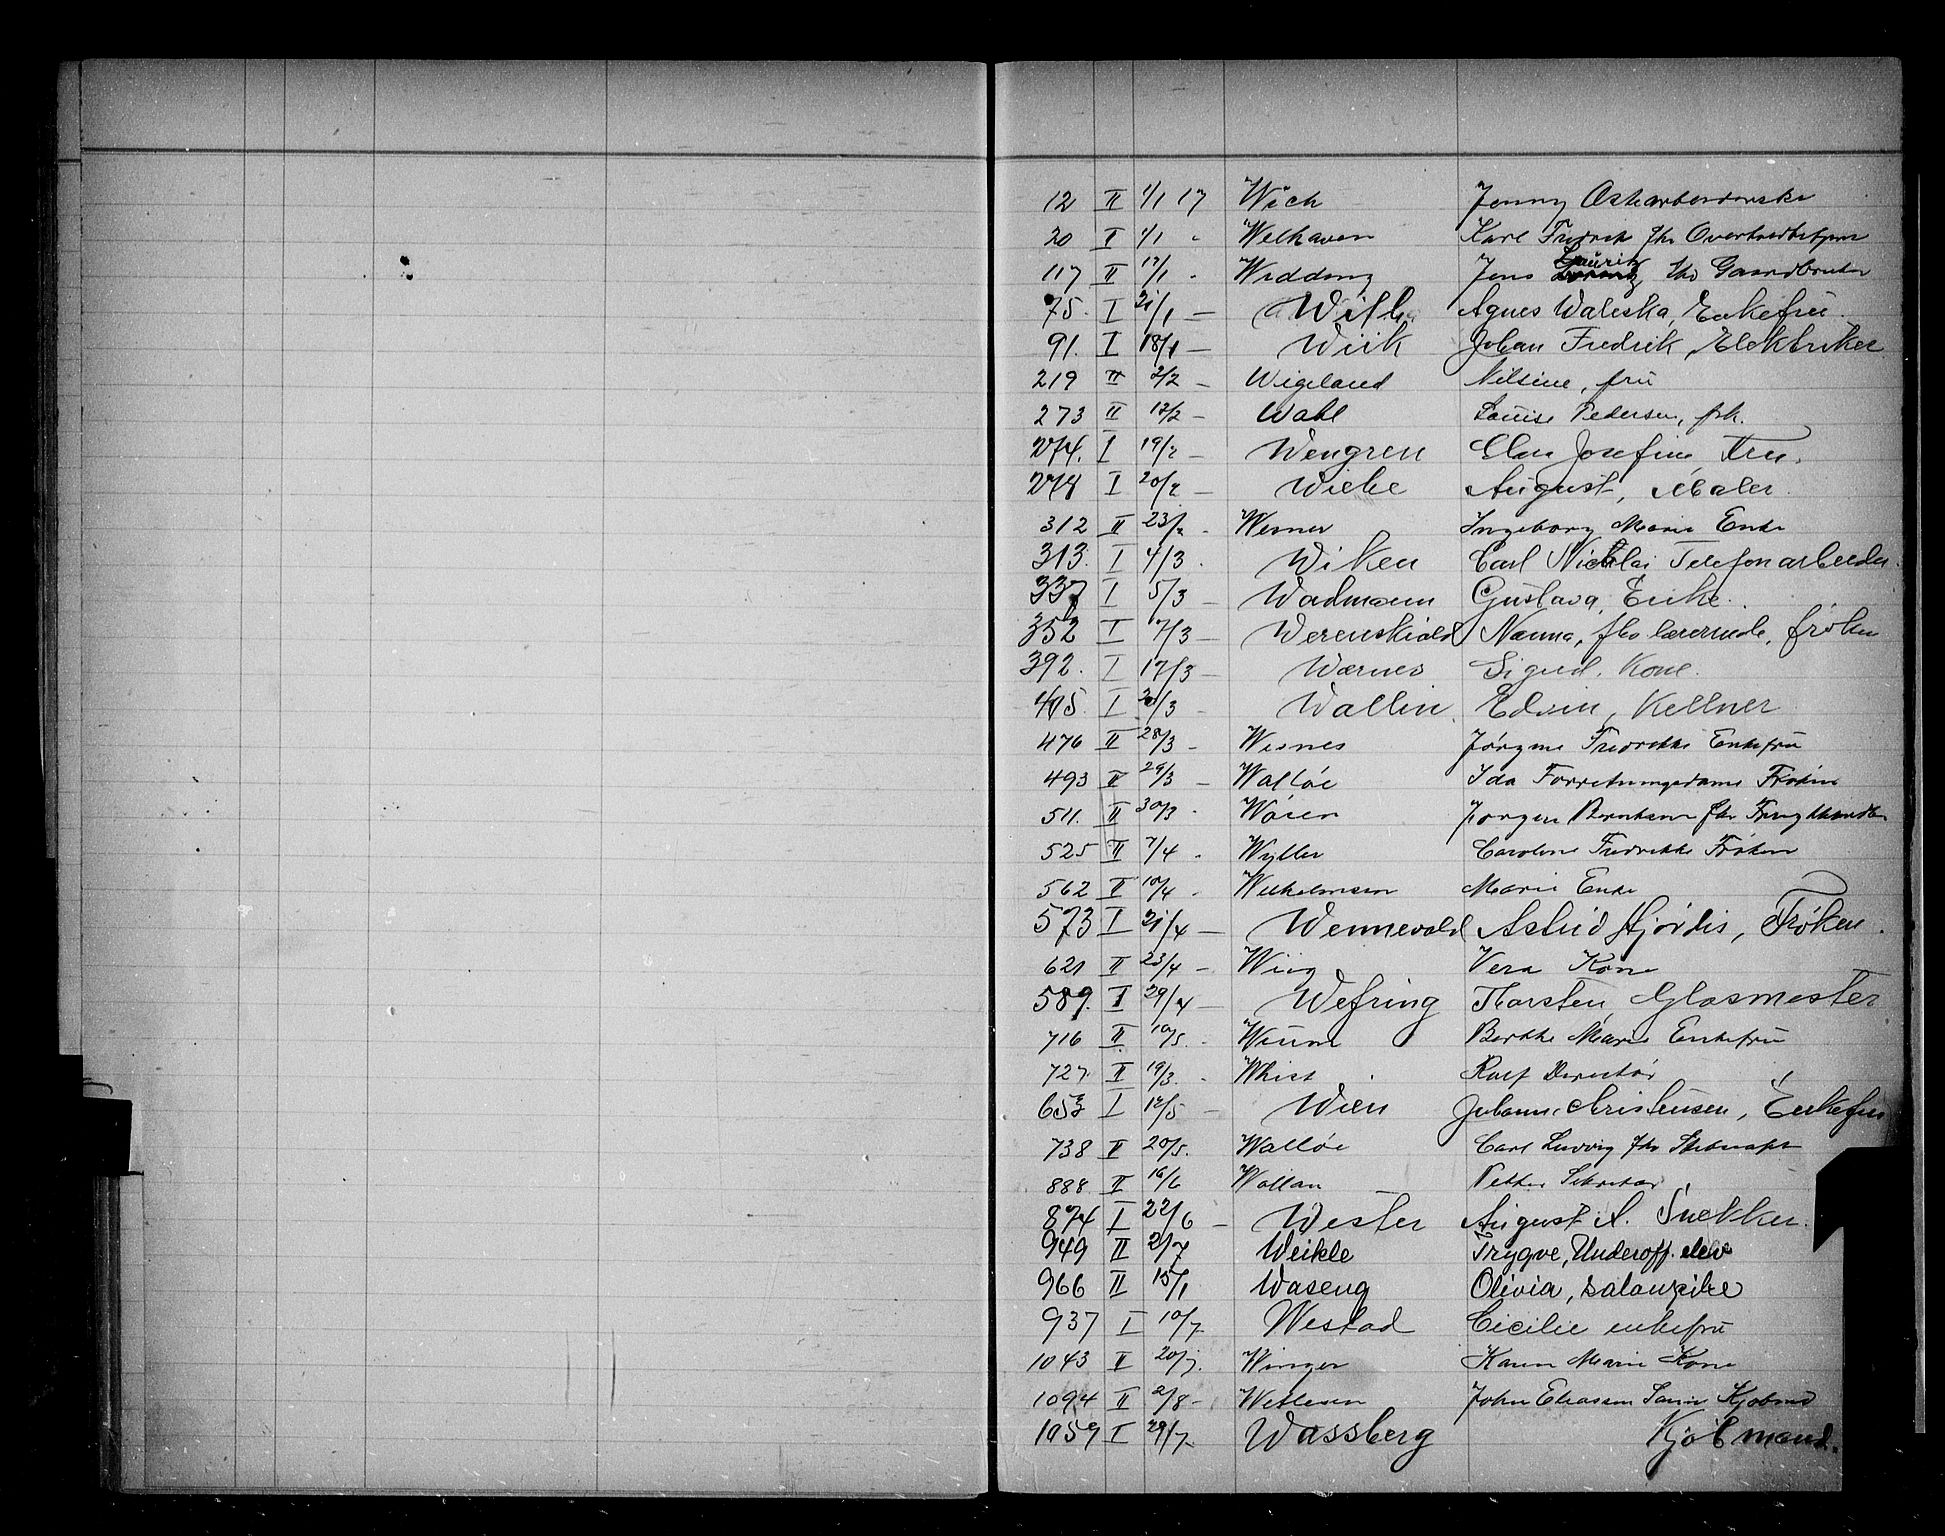 12 II 1/1 17 Wich Jenny
20 I 1/1 - Welhaven Karl Fredrik fhv
117 II 17/1 - Widding Jens Lauritz fhv Gaardbruker
75. I 21/1 — With Agnes Waleska, Enkefru.
91. I 18/1 — Wiik Johan Fredrik, Elektriker
219 II 2/2 — Wigeland Nilsine, fru
273 II 12/2 — Wahl Louise Pedersen, frk.
274. I 19/2 — Wengren Josefine Fru.
278 I 20/2 — Wiebe August, Maler.
312 II 23/2 - Werner Ingeborg Marie Enke
313. I 4/3 . Wiken Carl Nicolai Telefonarbeider.
337 I 5/3 — Wadmann Gustava, Enke.
352 I 7/3 — Werenskiold Nanna, fhv lærerinde, frøken
392. I 17/3 — Wærnes Sigrid. Kone.
415. I /3 — Wallin. Edvin, Kellner
476 II 28/3 - Wisnes Jørgine Fredrikke Enkefru
493 II 29/3 — Walløe Ida Forretningsdame Frøken
511. II 30/3 - Wøien Jørgen Berntsen fhv
525 II 7/4 - Wyller Caroline Fredrikke Frøken
562 II 10/4 - Wilhelmsen Marie Enke
573 I 21/4 — Wennevold Astrid Hjørdis, Frøken.
621 II 23/4 — Wiig Vera Kone
589. I 29/4 — Wefring Thorsten, Glasmester
716 II 10/5. - Wium Berthe Marie Enkefru
727. II 19/3. - Whist Rolf Direktør
653 I 12/5 — Wien Johanne Christensen, Enkefru
738 II 20/5. - Walløe Carl Ludvig fhv
888 II 16/6 Wollan Petter Sekretær
874 I 22/6 — Wester August A. Snekker.
949 II 2/7 Weikle Trygve, Underoff. elev
966 II 15/1 Waseng Olivia, salongpike
937 I 10/7 Westad Cicilie enkefru
1043 II 20/7. Winger Karen Marie Kone
1094 II 2/8 - Wetlesen John Eliassen Kjøbmd
1059 I 29/7 - Wassberg Kjøbmand.